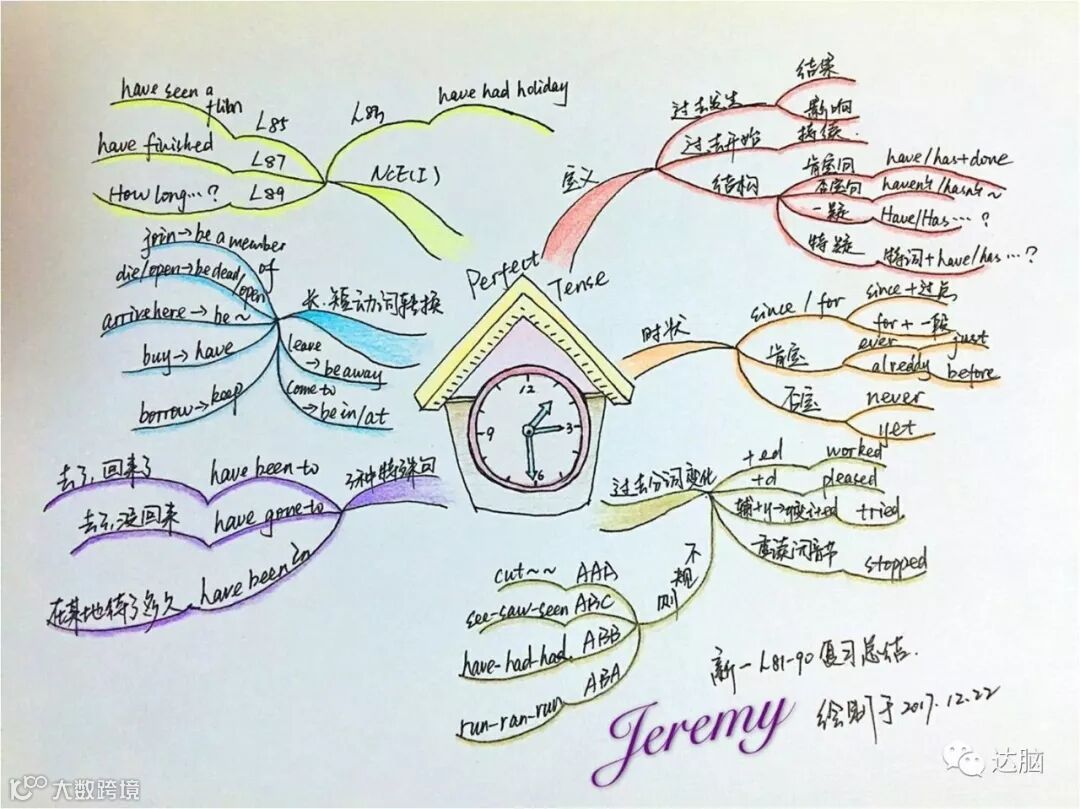 Perfect
Tense
12
3
6
9
定义
过去发生
结果
影响
过去开始
持续
结构
肯定句
have/has+done
否定句
haven't/hasn't~
一疑
Have/Has…?
特疑
特词+have/has…?
时状
since/for
since+过点
for+一段
肯定
ever
just
alreddy
before
否定
never
yet
过去分词变化
+ed
worked
+d
pleased
tried
重读闭音节
stopped
不规则
AAA
cut~~
ABC
see-saw-seen
ABB
have-had-had
ABA
run-ran-run
3种特殊句
have been to
去了,回来了
have gone to
去了,没回来
have been in
在某地待了多久
长.短动词转换
join→be a member
of
die/open→be dead
/open
arrive here→be~
buy→have
borrow→keep
leave
→be away
come to
→be in/at
NCE(I)
L83
have had holiday
L85
have seen a
film
L87
have finished
L89
How long…?
新一L81-90复习总结.
绘制于2017.12.22
Jeremy
达脑
大数跨境